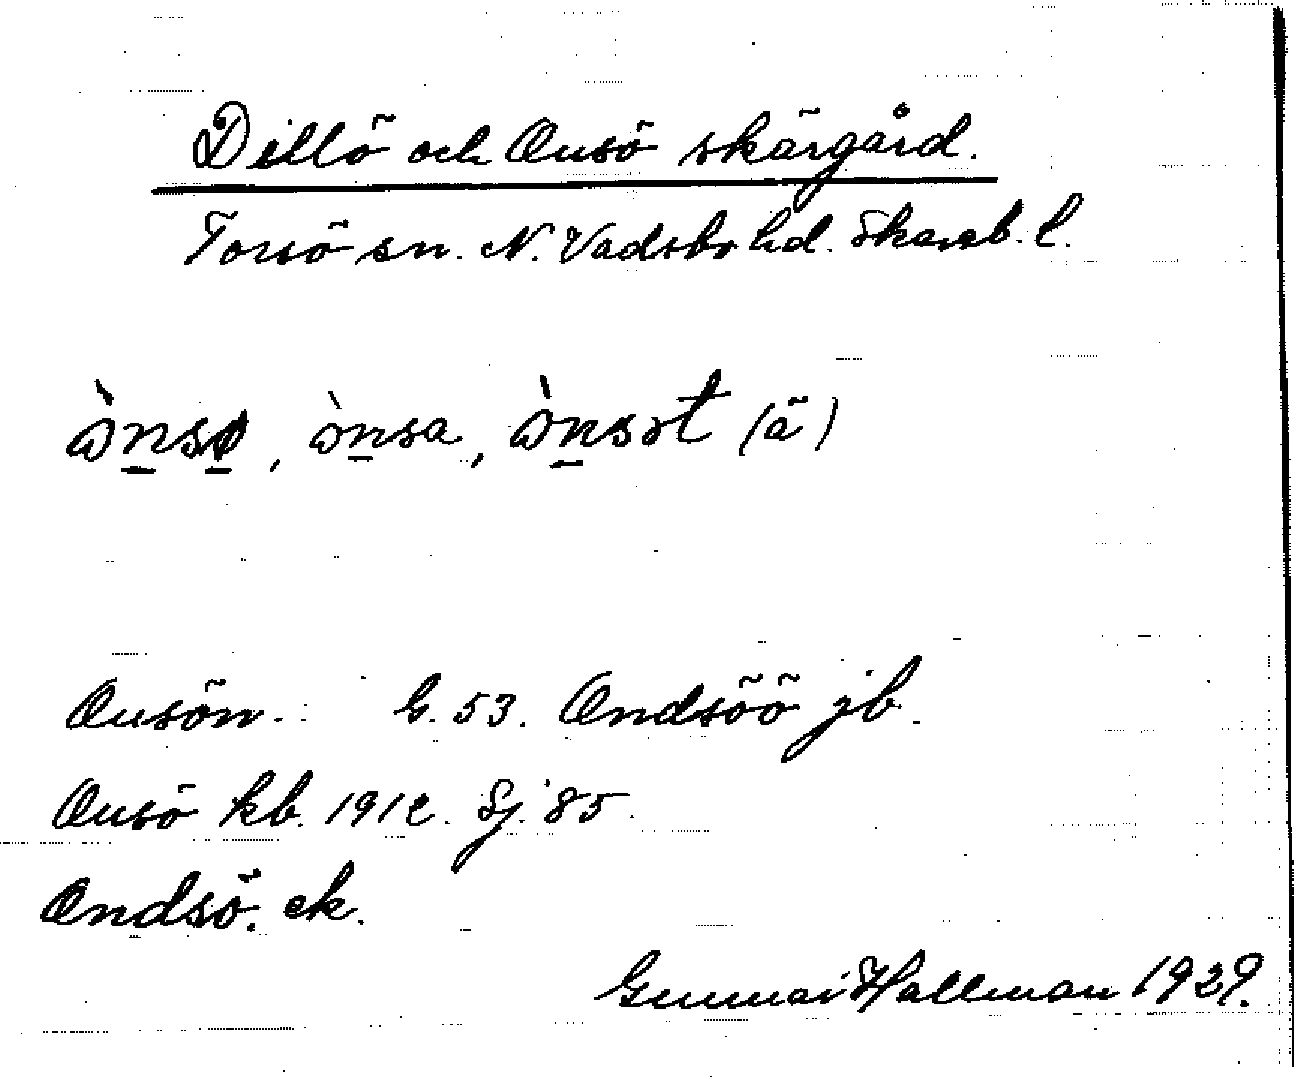 Dillö och Onsö skärgård.
Torsö sn. N. Vadsbo hd. Skarab. l.
ò̱nsø̱, òn̠sa, òn̠sət (ä)
Onsön. G. 53. Ondsöö jb.
Onsö kb. 1912. Sj. 85
Ondsö. ek.
Gunnar Hallman 1929.